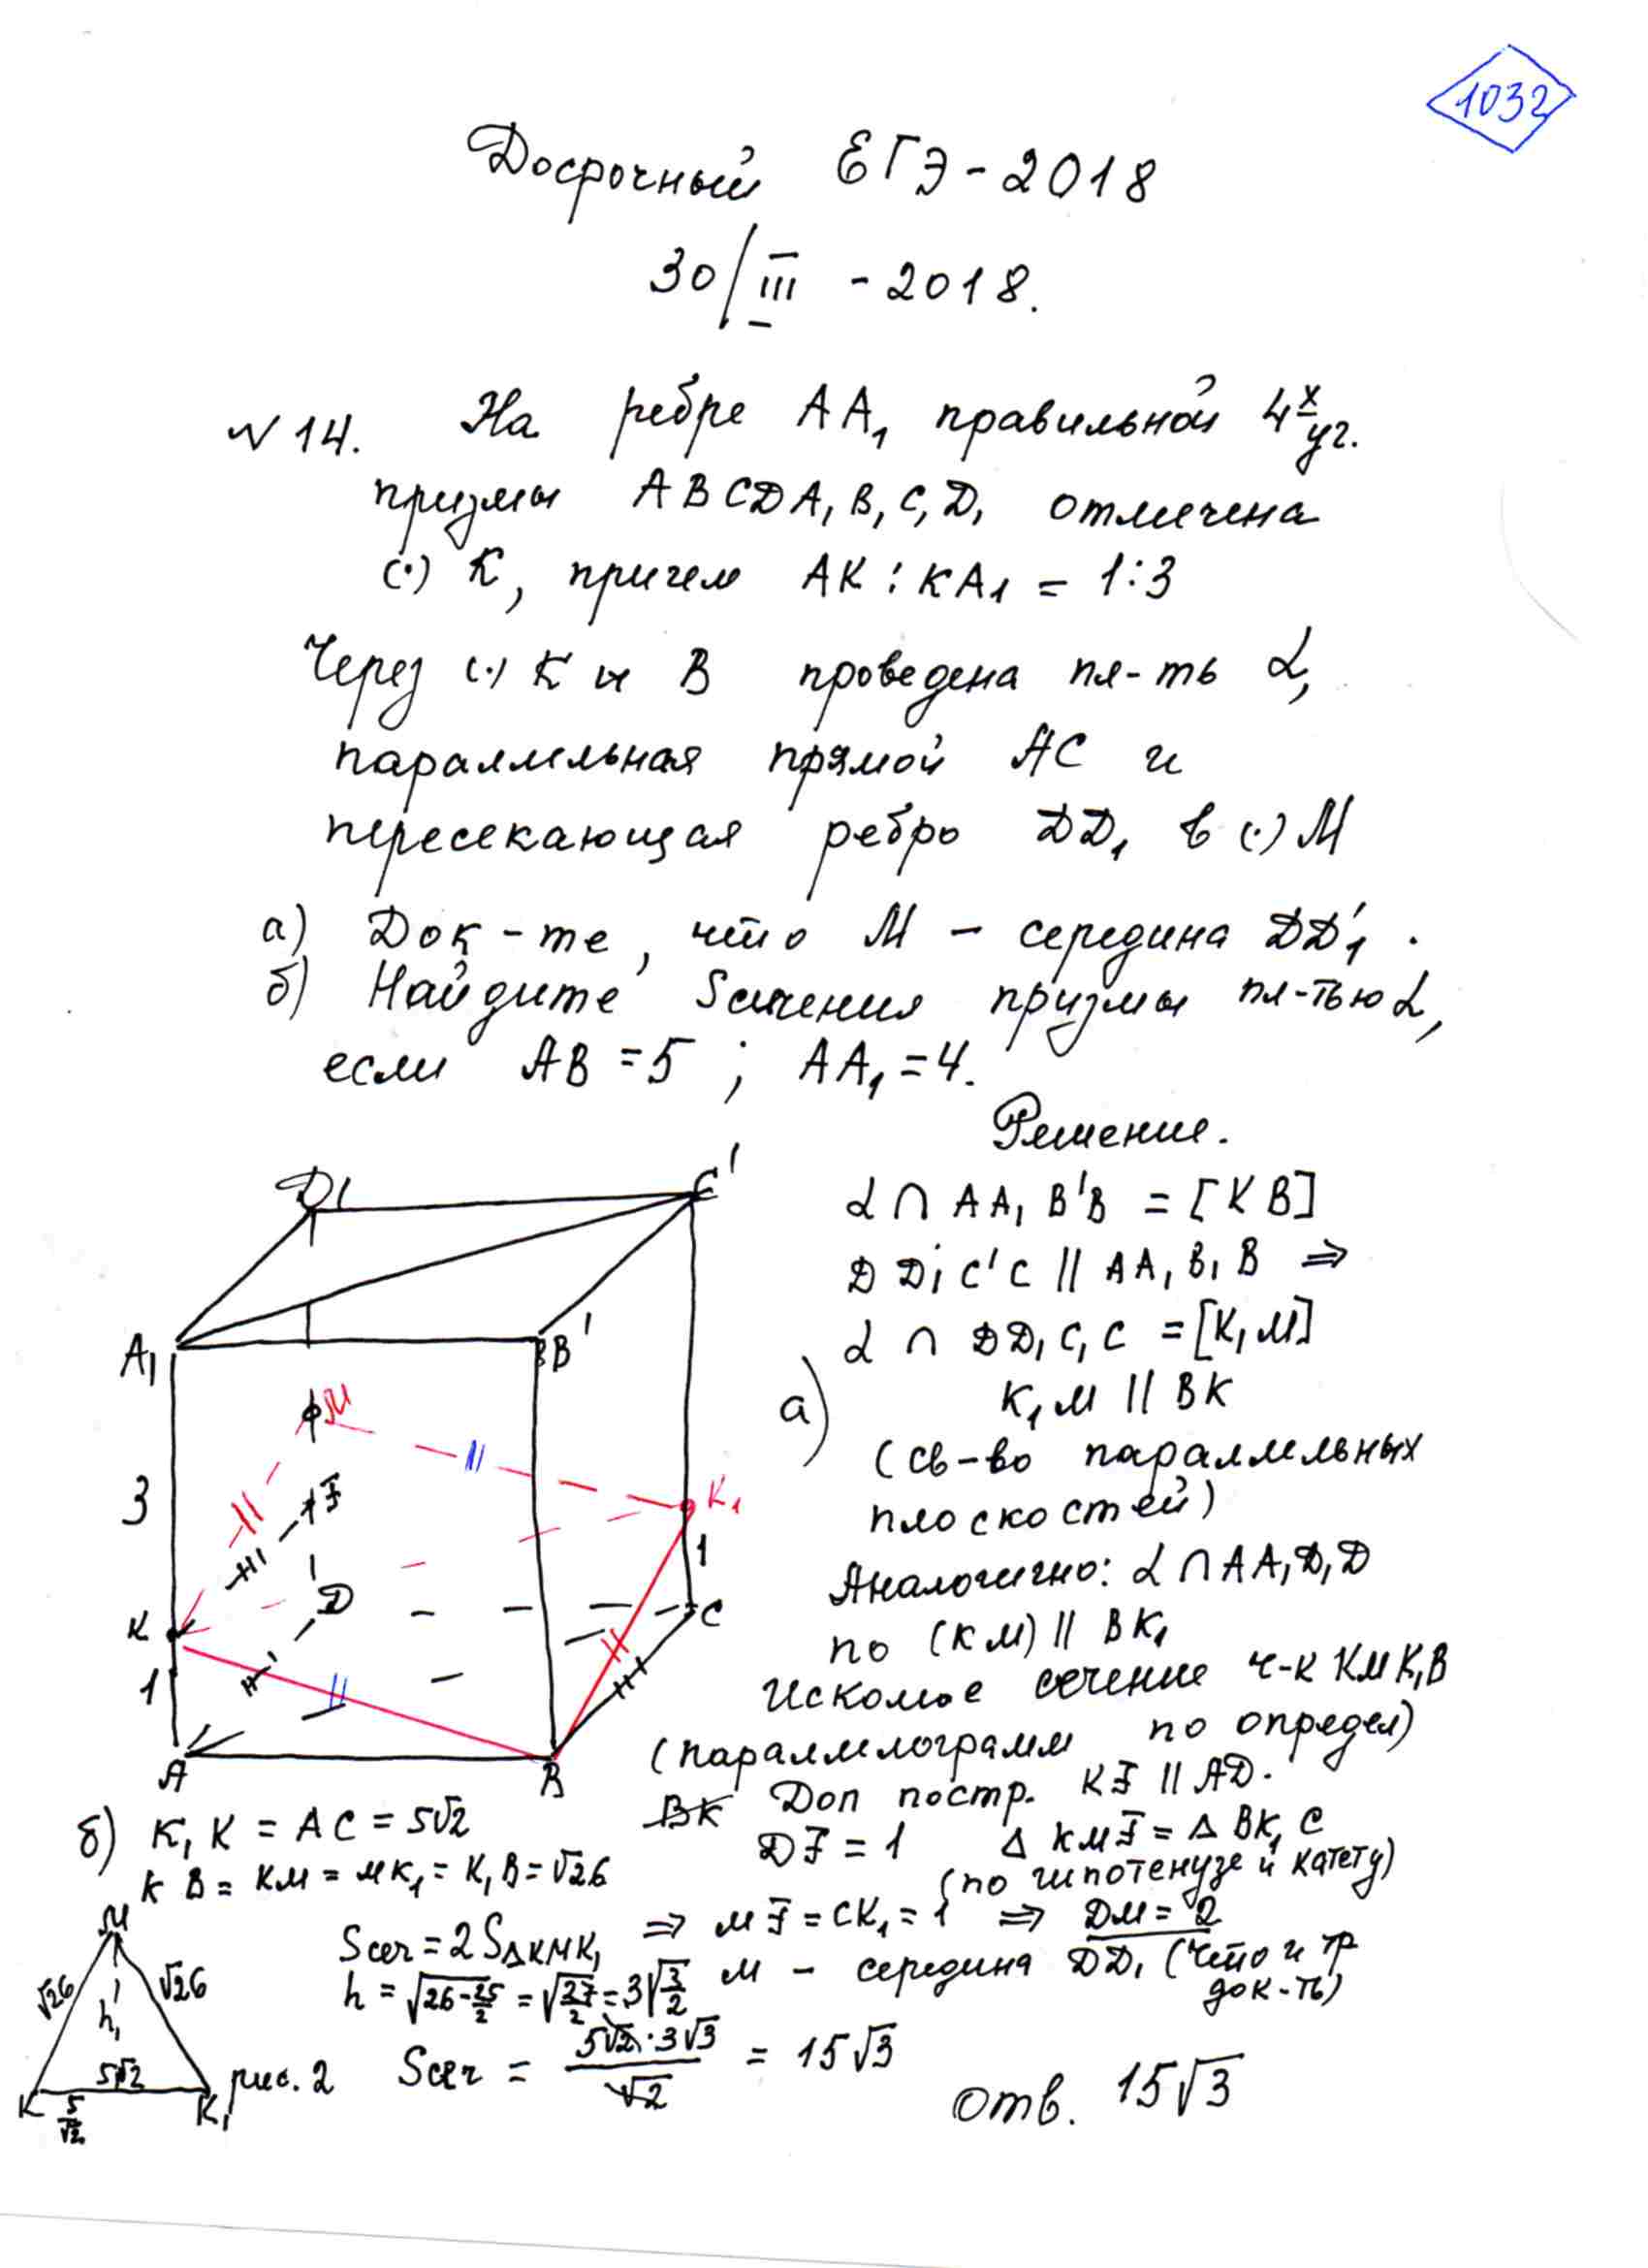 1032
Досрочный ЕГЭ-2018
30/III - 2018.
N 14. На ребре AA₁ правильной 4х уг.
призмы ABCDA₁B₁C₁D₁ отмечена
(·) K, причем AK : KA₁ = 1:3
Через (·) K и B проведена пл-ть α,
параллельная прямой AC и
пересекающая ребро DD₁ в (·) M
а) Док-те, что M – середина DD'₁.
б) Найдите Sсечения призмы пл-тью α,
если AB = 5 ; AA₁ = 4.
Решение.
α ∩ AA₁B'B = [KB]
DD₁'C'C || AA₁B₁B ⇒
α ∩ DD₁C₁C = [K₁M]
а) K₁M || BK
(св-во параллельных
плоскостей)
Аналогично: α ∩ AA₁D₁D
по (KM) || BK₁
Искомое сечение ч-к KMK₁B
(параллелограмм по определ)
BK Доп постр. KF || AD.
DF = 1 Δ KMF = Δ BK₁C
(по гипотенузе и катету)
⇒ MF = CK₁ = 1 ⇒ DM = 2
M – середина DD₁ (что и тр
док-ть)
D₁ C'
A₁ B'
M
3 F K₁
1
K D C
1
A B
б) K₁K = AC = 5√2
KB = KM = MK₁ = K₁B = √26
Sсеч = 2SΔKMK₁
h = √(26-25/2) = √(27/2) = 3√(3/2)
Sсеч = 5√2·3√3/√2 = 15√3
M
√26 √26
h₁
5√2
K K₁ рис. 2
5/√2
Отв. 15√3